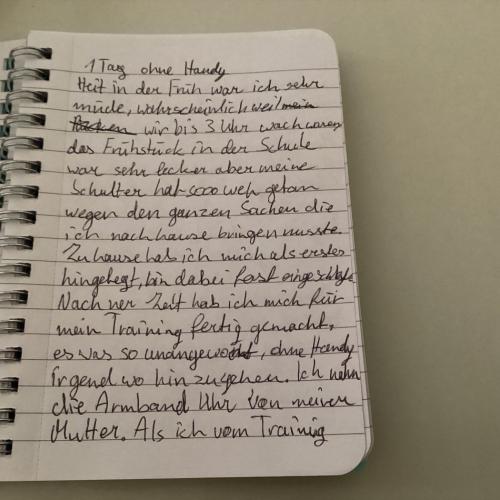 1 Tag ohne Handy
Heit in der Früh war ich sehr
müde, wahrscheinlich weil mein
wir bis 3 Uhr wach waren
das Frühstück in der Schule
war sehr lecker aber meine
Schulter hat sooo weh getan
wegen den ganzen Sachen die
ich nachhause bringen musste.
Zuhause hab ich mich als erstes
hingelegt, bin dabei fast eingeschlafe
Nach ner Zeit hab ich mich für
mein Training fertig gemacht,
es was so unangewohnt, ohne Handy
irgend wo hin zu gehen. Ich nehm
die Armband Uhr von meiner
Mutter. Als ich vom Training